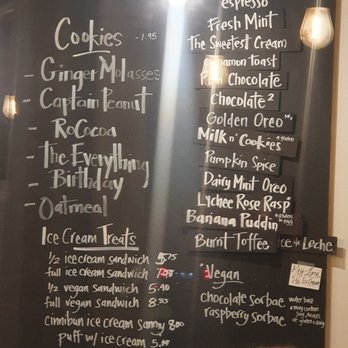 Cookies - 1.95
- Ginger Molasses
- Captain Peanut
- RoCocoa
- The Everything
- Birthday
- Oatmeal
Ice Cream Treats
1/2 ice cream sandwich 5.75
full ice cream sandwich
1/2 vegan sandwich 5.90
full vegan sandwich 8.85
cinnibun ice cream sammy 8.00
puff w/ ice cream
espresso
Fresh Mint
The Sweetest Cream
Cinnamon Toast
Chocolate
Chocolate 2
Golden Oreo
Milk n' Cookies
Pumpkin Spice
Dairy Mint Oreo
Lychee Rose Rasp
Banana Puddin
Burnt Toffee
Vegan
chocolate sorbae
raspberry sorbae
water base
Key Lime